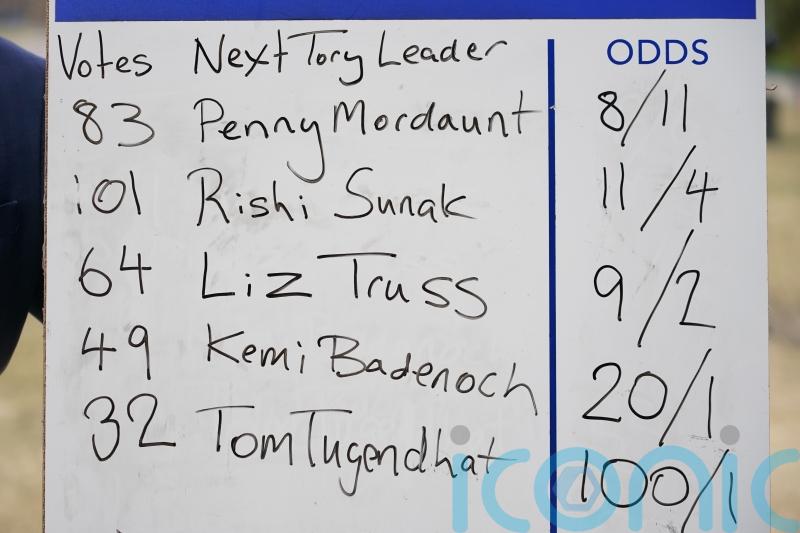 Votes Next Tory Leader ODDS
83 Penny Mordaunt 8/11
101 Rishi Sunak 11/4
64 Liz Truss 9/2
49 Kemi Badenoch 20/1
32 Tom Tugendhat 100/1
iconic